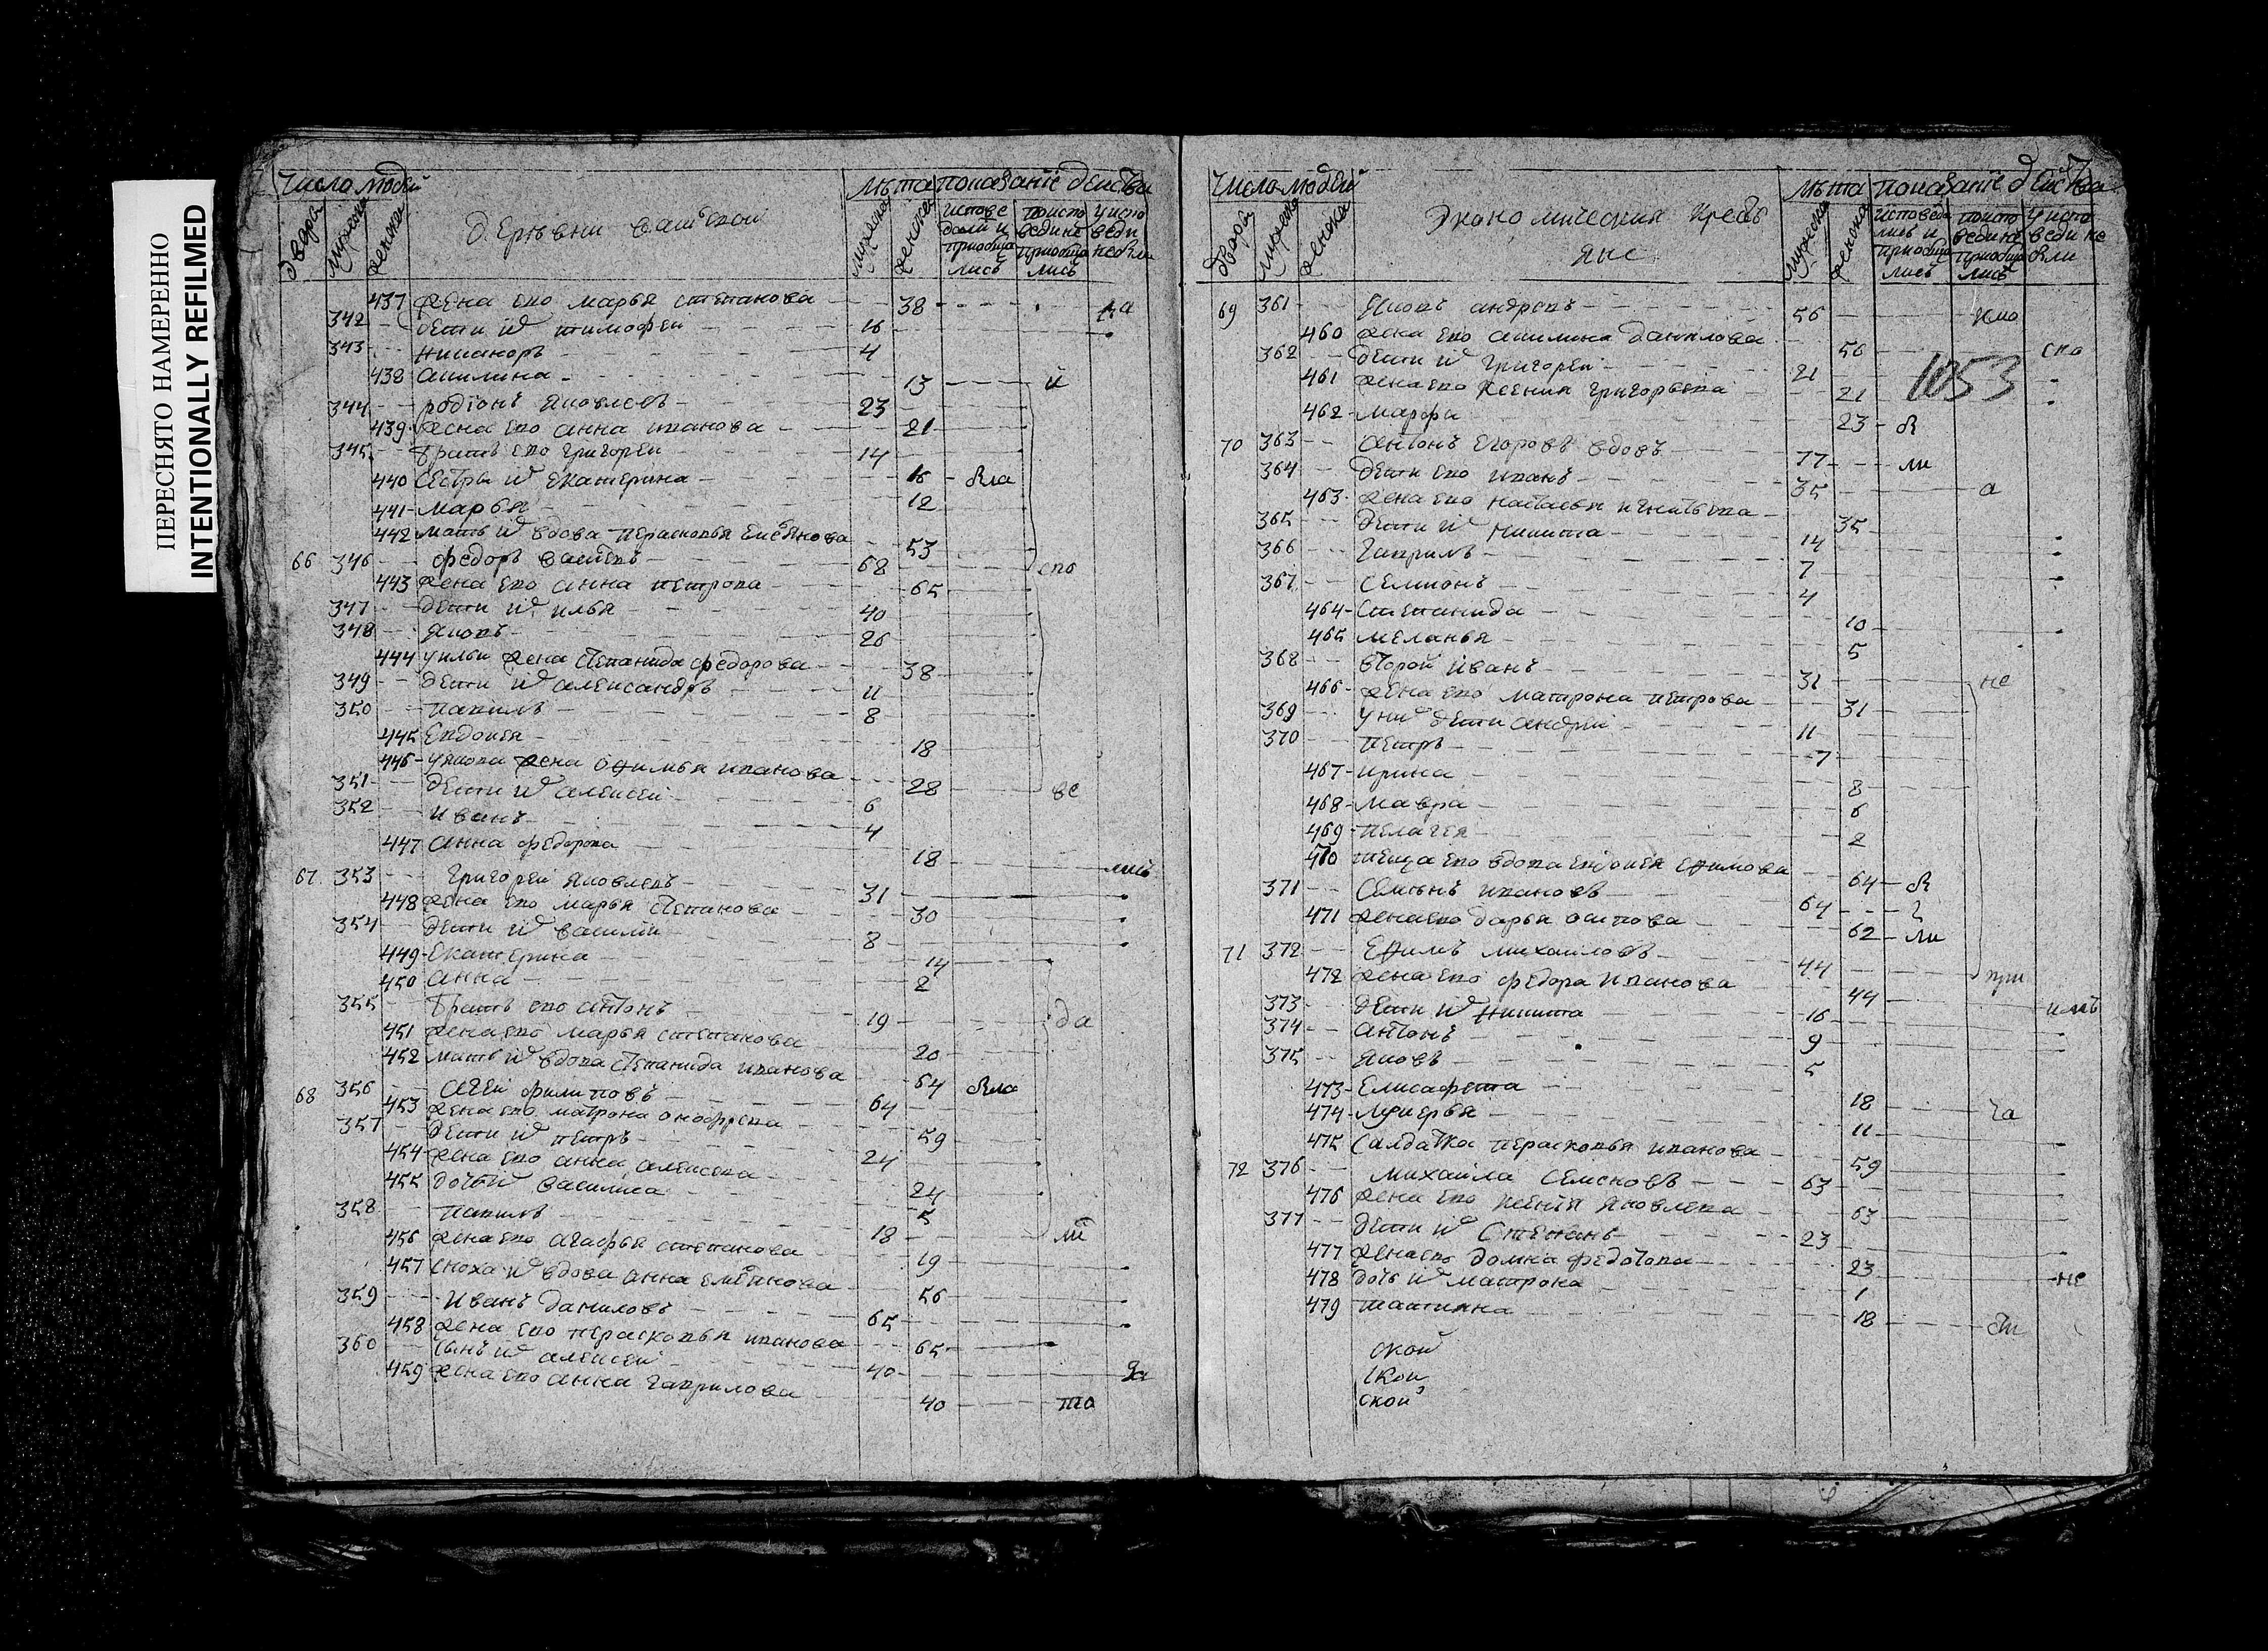 ПЕРЕСНЯТО НАМЕРЕННО
INTENTIONALLY REFILMED
Число людей
Лѣта показанїе дѣйства
двара мужеска женска
деревни
мужеска женска
437 жена ево марья степанова 38
342 дети их тимофей 16
343 никаноръ 4
438 акилина 13
344 родїонъ яковлевъ 23
439 жена ево анна иванова 21
345 братъ ево григорей 14
440 сестры их екатерина 16
441 марья 12
442 мать их вдова перасковья емеянова 53
66 346 федоръ 68
443 жена ево анна петрова 65
347 дети их илья 40
348 яковъ 26
444 у ильи жена степанида федорова 38
349 дети их александръ 11
350 павилъ 8
445 Евдокея 18
446 у якова жена офимья иванова 28
351 дети их алексей 6
352 иванъ 4
447 анна федорова 18
67 353 григорей яковлевъ 31
448 жена ево марья степанова 30
354 дети их василий 8
449 екатерина 14
450 анна 2
355 братъ ево антонъ 19
451 жена ево марья степанова 20
452 мать их вдова степанида иванова 64
68 356 агей филиповъ 64
453 жена ево матрона онофрева 59
357 дети их петръ 24
454 жена ево анна алексева 24
455 дочь их василиса 5
358 павилъ 18
456 жена ево агафья степанова 19
457 сноха их вдова анна емеянова 56
359 Иванъ даниловъ 65
458 жена ево перасковья иванова 65
360 сынъ их алексей 40
459 жена ево анна гаврилова 40
Число людей
Лѣта показанїе дѣйства
двара мужеска женска
Экономическия кресть
яне
мужеска женска
1053
69 361 Яковъ андревъ 56
460 жена ево акилина данилова 56
362 дети их григорей 21
461 жена ево ксения григорьева 21
462 марфа 23
70 363 антонъ егоровъ вдовъ 77
364 дети ево иванъ 35
463 жена ево настасья игнатьева 35
365 дети их никита 14
366 гаврилъ 7
367 семионъ 4
464 степанида 10
465 меланья 5
368 второй иванъ 31
466 жена ево матрона петрова 31
369 у них дети андрей 11
370 петръ 7
467 ирина 8
468 мавра 6
469 пелагея 2
470 теща ево вдова евдокея ефимова 64
371 семенъ ивановъ 64
471 жена ево дарья осипова 62
71 372 Ефимъ михайловъ 44
472 жена ево федора иванова 44
373 дети их никита 16
374 антонъ 9
375 яковъ 5
473 елисафета 18
474 лукерья 11
475 салдатка перасковья иванова 59
72 376 михаила семеновъ 63
476 жена ево ксенїя яковлева 63
377 дети их степанъ 23
477 жена ево домна федотова 23
478 дочь их матрона 1
479 татияна 18
ской
ской
ской